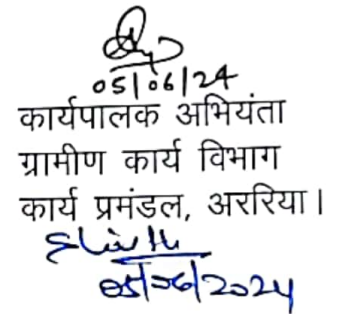 05/06/24
कार्यपालक अभियंता
ग्रामीण कार्य विभाग
कार्य प्रमंडल, अररिया।
05/06/2024